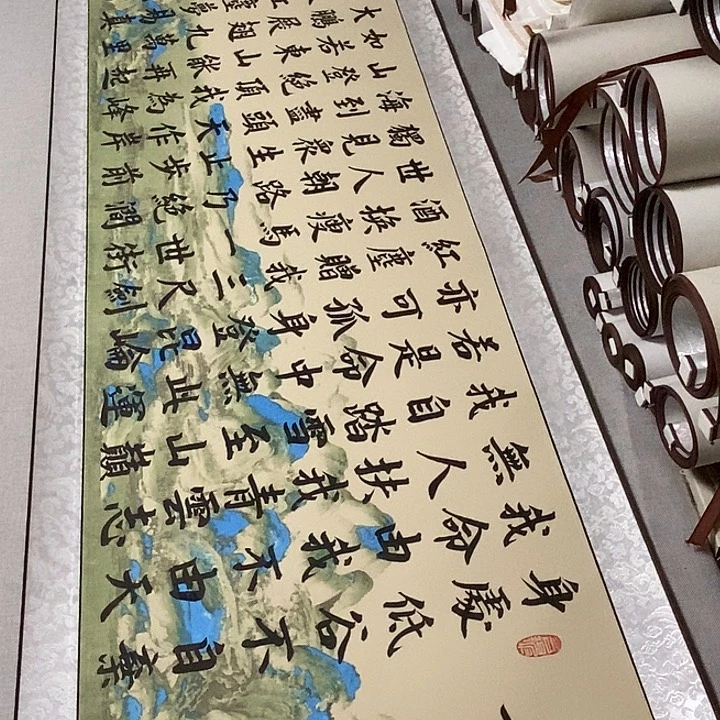 身處低谷不自棄
我命由我不由天
無人扶我青雲志
我自踏雪至山巔
若是命中無此運
亦可孤身登昆崘
紅塵贈我三尺劍
酒換瘦馬一世街
世人朝路乃絕澗
獨見衆生止步前
海到盡頭天作岸
山登絕頂我為峰
如若東山能再起
大鵬展翅九萬里
夢易真